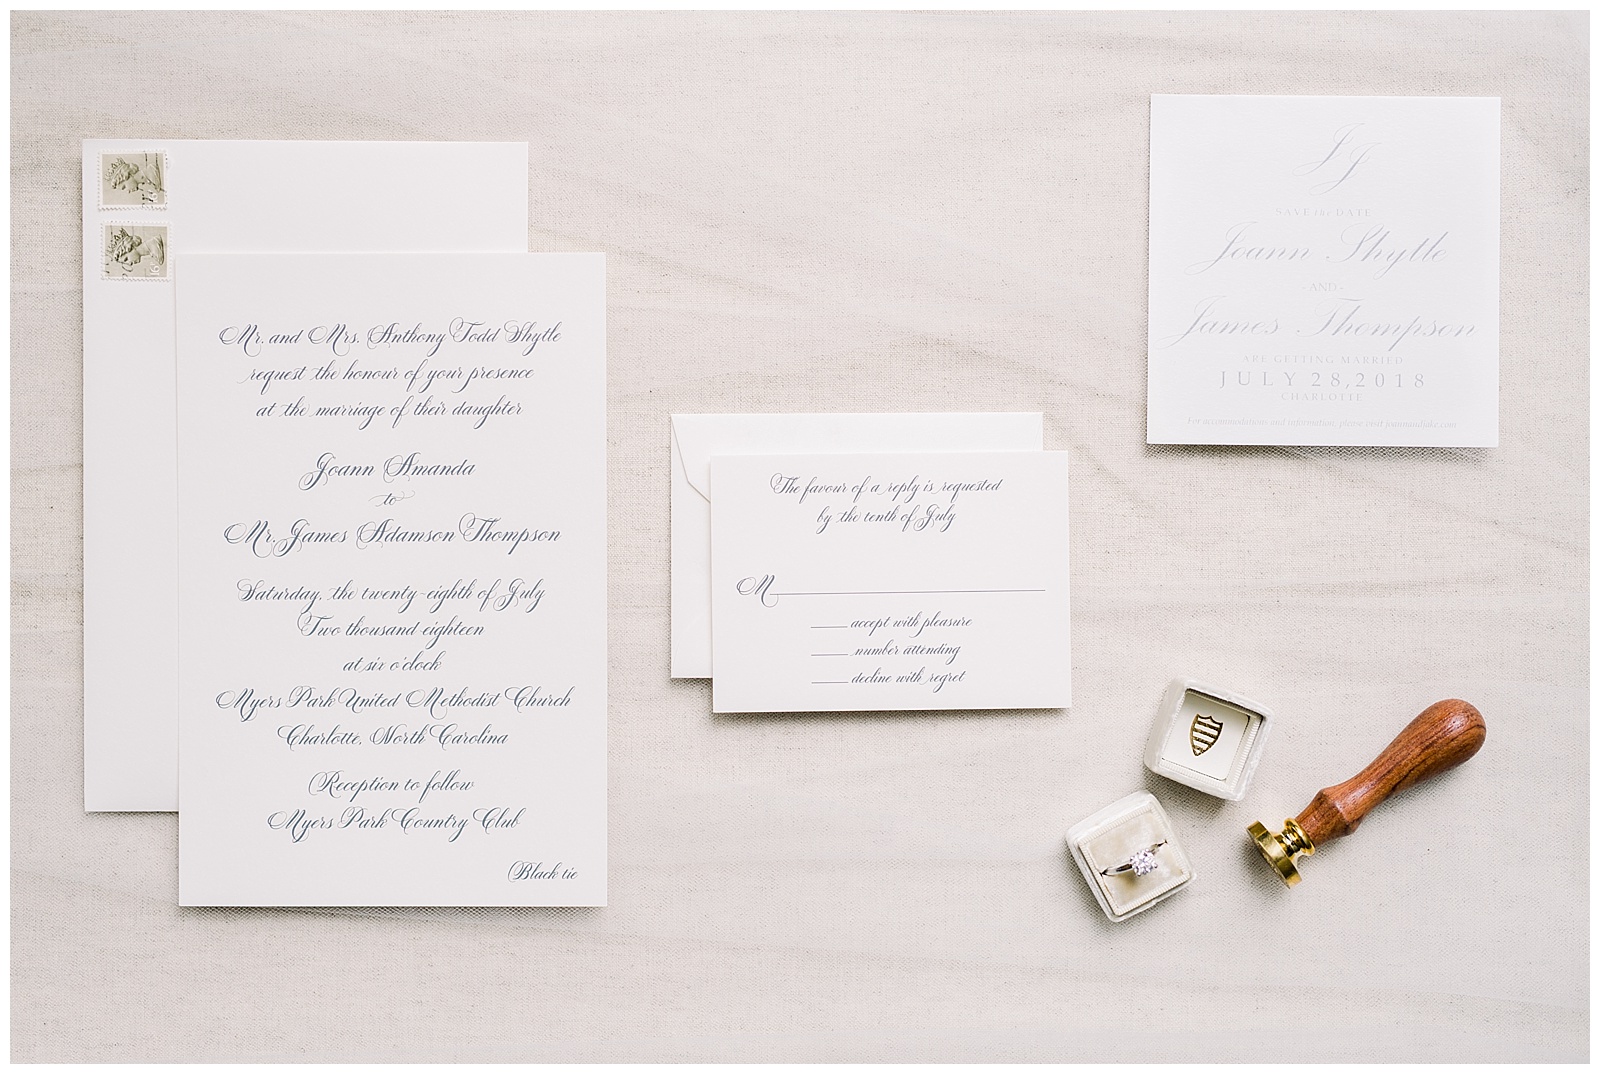 Mr. and Mrs. Anthony Todd Shytle
request the honour of your presence
at the marriage of their daughter
Joann Amanda
to
Mr. James Adamson Thompson
Saturday, the twenty-eighth of July
Two thousand eighteen
at six o'clock
Myers Park United Methodist Church
Charlotte, North Carolina
Reception to follow
Myers Park Country Club
Black tie
The favour of a reply is requested
by the tenth of July
M
accept with pleasure
number attending
decline with regret
JJ
SAVE the DATE
Joann Shytle
- AND -
James Thompson
ARE GETTING MARRIED
JULY 28, 2018
CHARLOTTE
For accommodations and information, please visit joannandjake.com